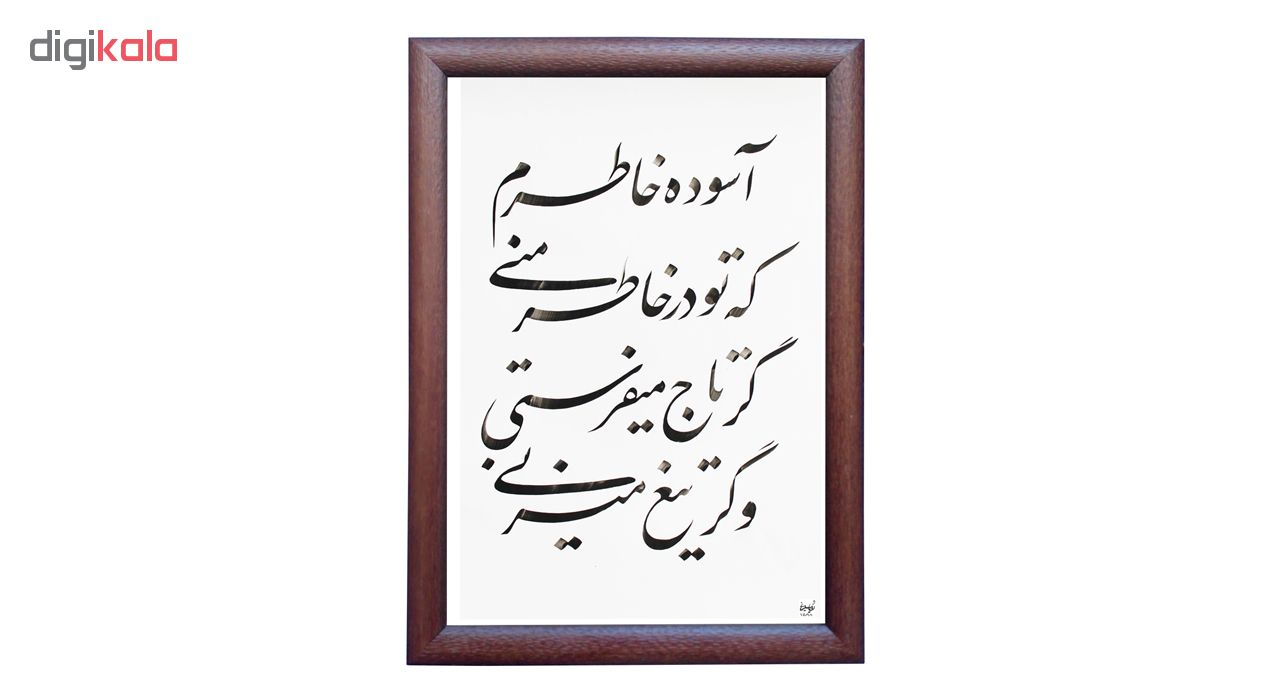 digikala
آسوده خاطرم
که تو در خاطر منی
گر تاج میفرستی
وگر تیغ میزنی